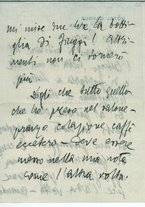 mi mise su ... la botti-
glia di Fiuggi! altri-
menti non ci tornerò
più
Digli che tutto quello
che ho preso nel salone -
pranzo colazione caffè
eccetera - deve essere
messo nella mia nota
come l'altra volta.